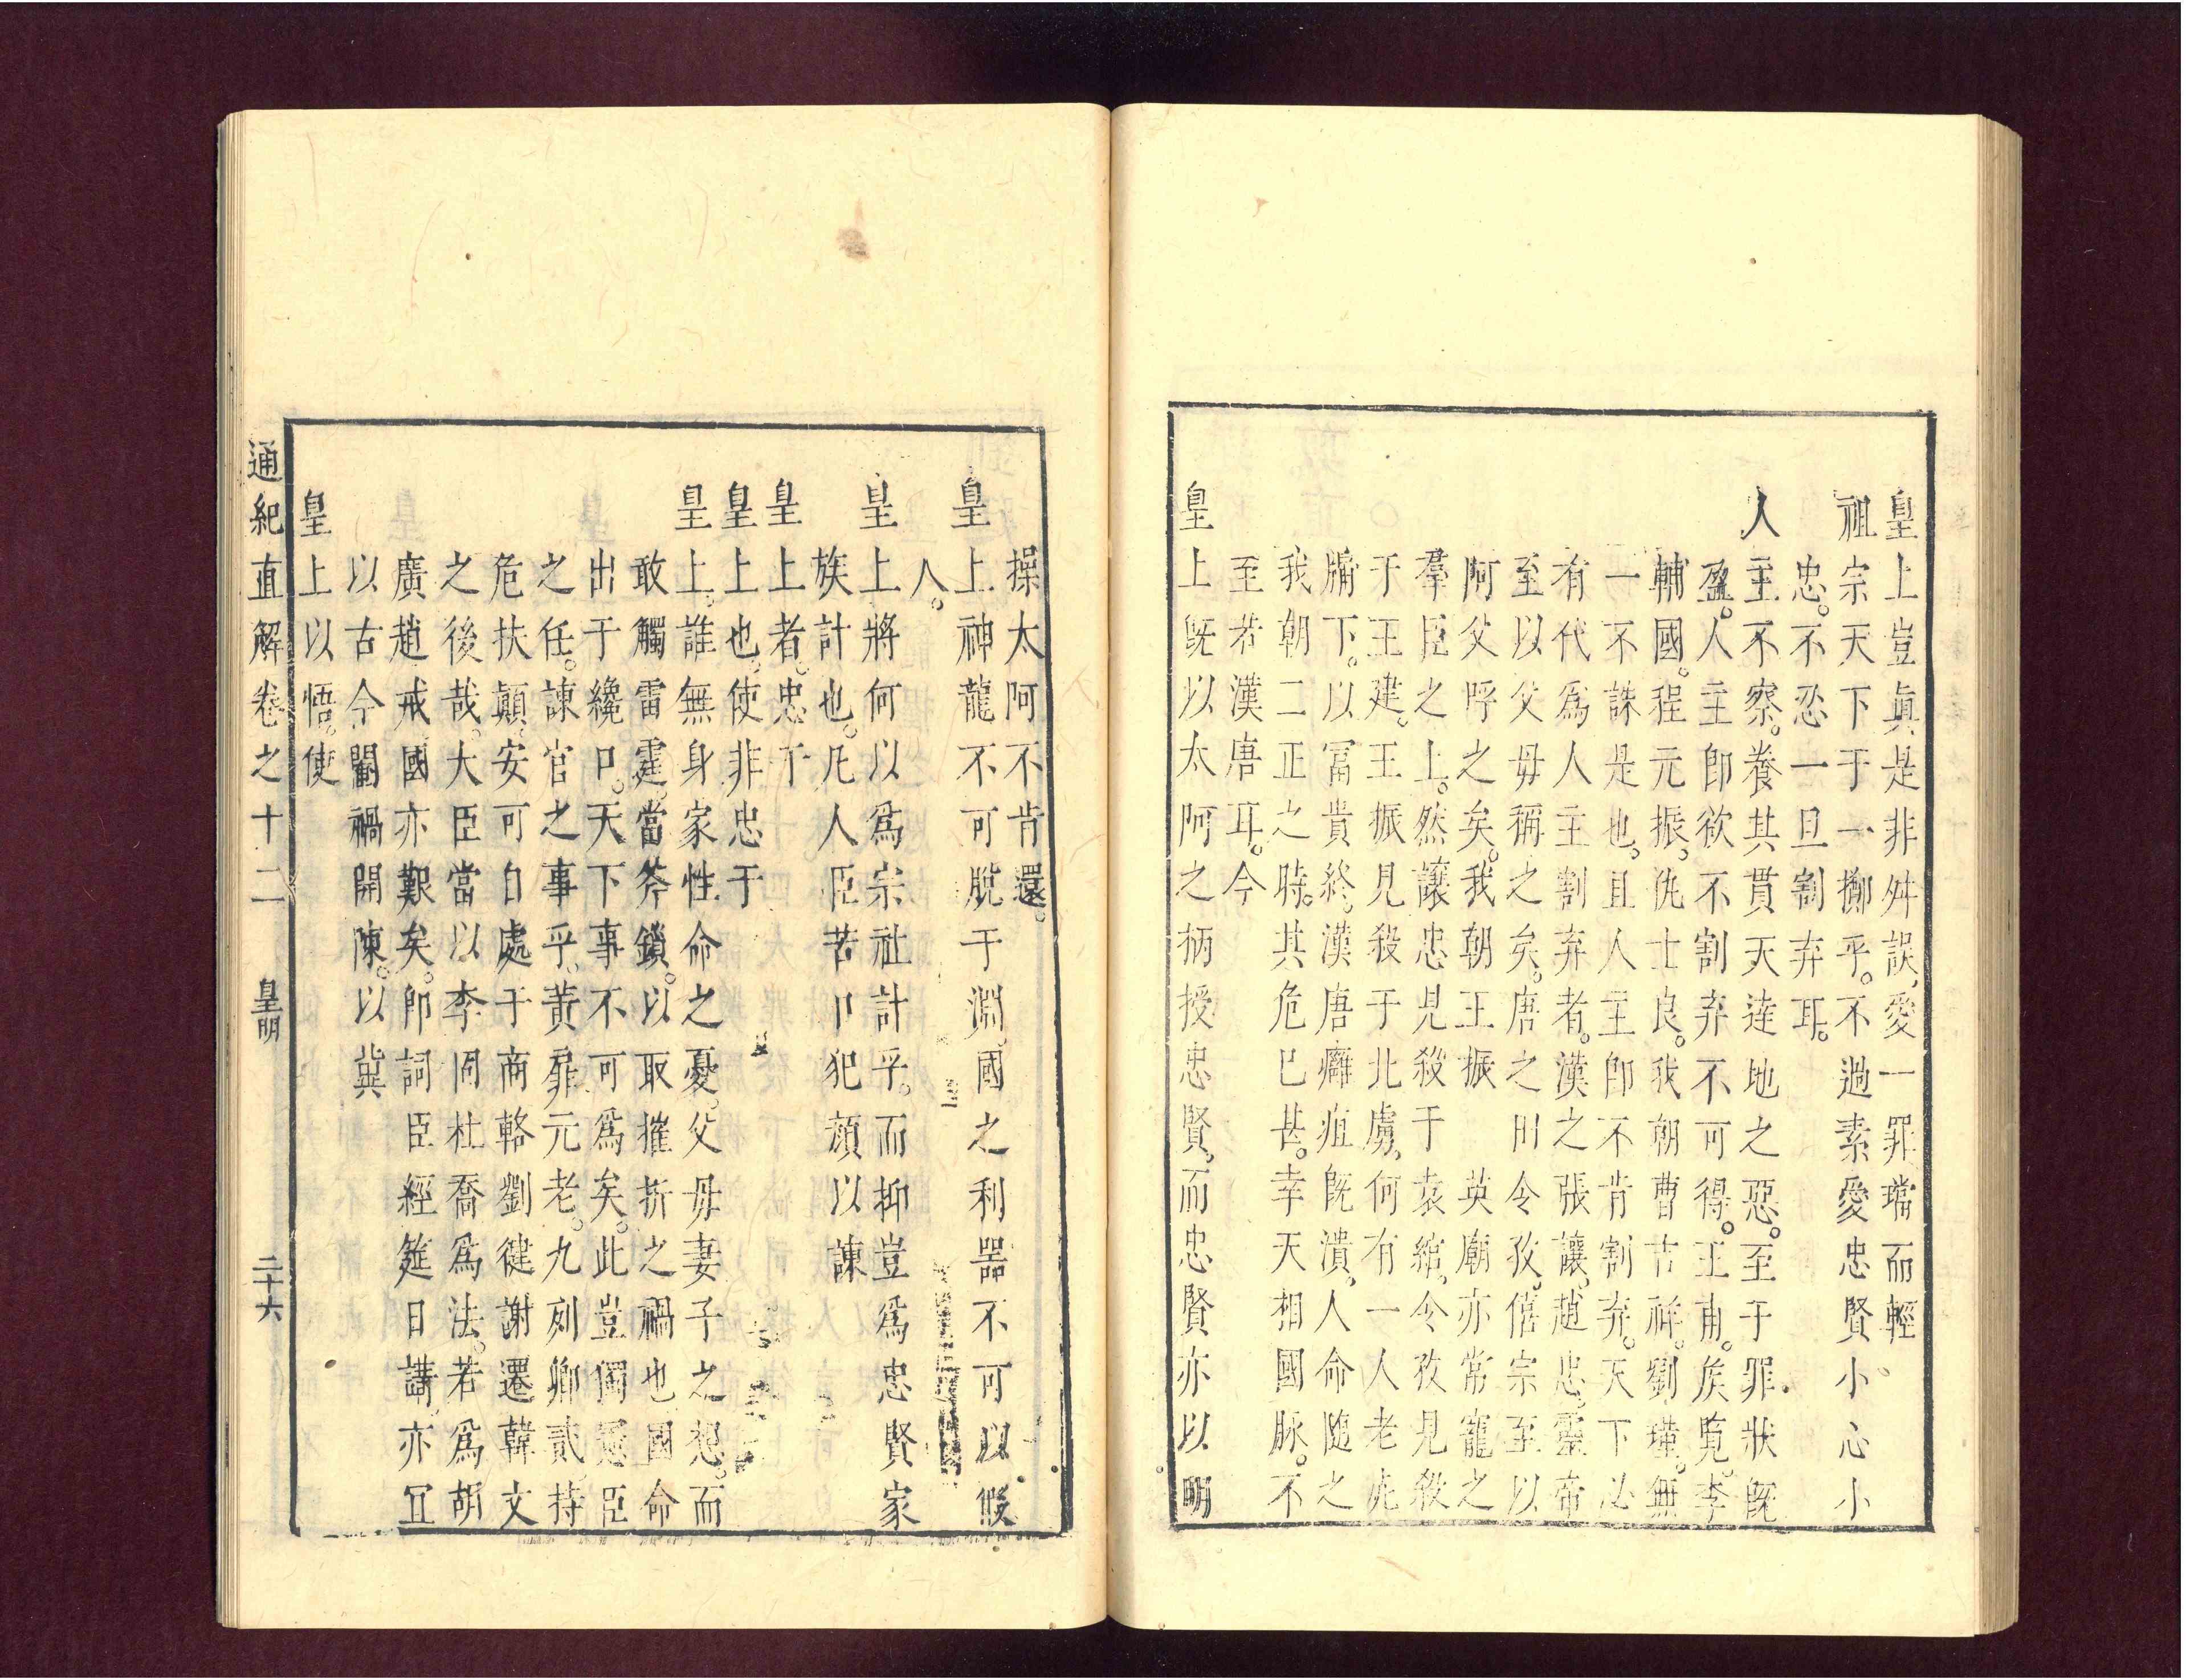 皇上豈眞是非舛誤愛一罪璫而輕
祖宗天下于一擲乎不過素愛忠賢小心小
忠不忍一旦割弃耳
人主不察養其貫天達地之惡至于罪狀旣
盈人主卽欲不割弃不可得王甫矦覧李
輔國程元振仇士良我朝曹吉祥劉瑾無
一不誅是也且人主卽不肯割弃天下必
有代爲人主割弃者漢之張讓趙忠靈帝
至以父毋稱之矣唐之田令孜僖宗至以
阿父呼之矣我朝王振英廟亦常寵之
羣臣之上然讓忠見殺于袁紹令孜見殺
于王建王振見殺于北虜何有一人老死
牖下以冨貴終漢唐癰疽旣潰人命随之
我朝二正之時其危巳甚幸天相國脉不
至若漢唐耳今
皇上旣以太阿之柄授忠賢而忠賢亦以明
操太阿不肯還
皇上神龍不可脫于淵國之利噐不可以假
人
皇上將何以爲宗社計乎而抑豈爲忠賢家
族計也凡人臣苦口犯顔以諫
皇上者忠于
皇上也使非忠于
皇上誰無身家性命之憂父毋妻子之想而
敢觸雷霆當斧鎖以取摧折之禍也國命
出于纔口天下事不可爲矣此豈獨臣
之任諫官之事乎黃扉元老九列卿貳持
危扶顚安可自處于商輅劉健謝遷韓文
之後哉大臣當以李固杜喬爲法若爲胡
廣趙戒國亦艱矣卽詞臣經筵日講亦冝
以古今閹禍開陳以兾
皇上以悟使
通紀直解卷之十二 皇明 二十六